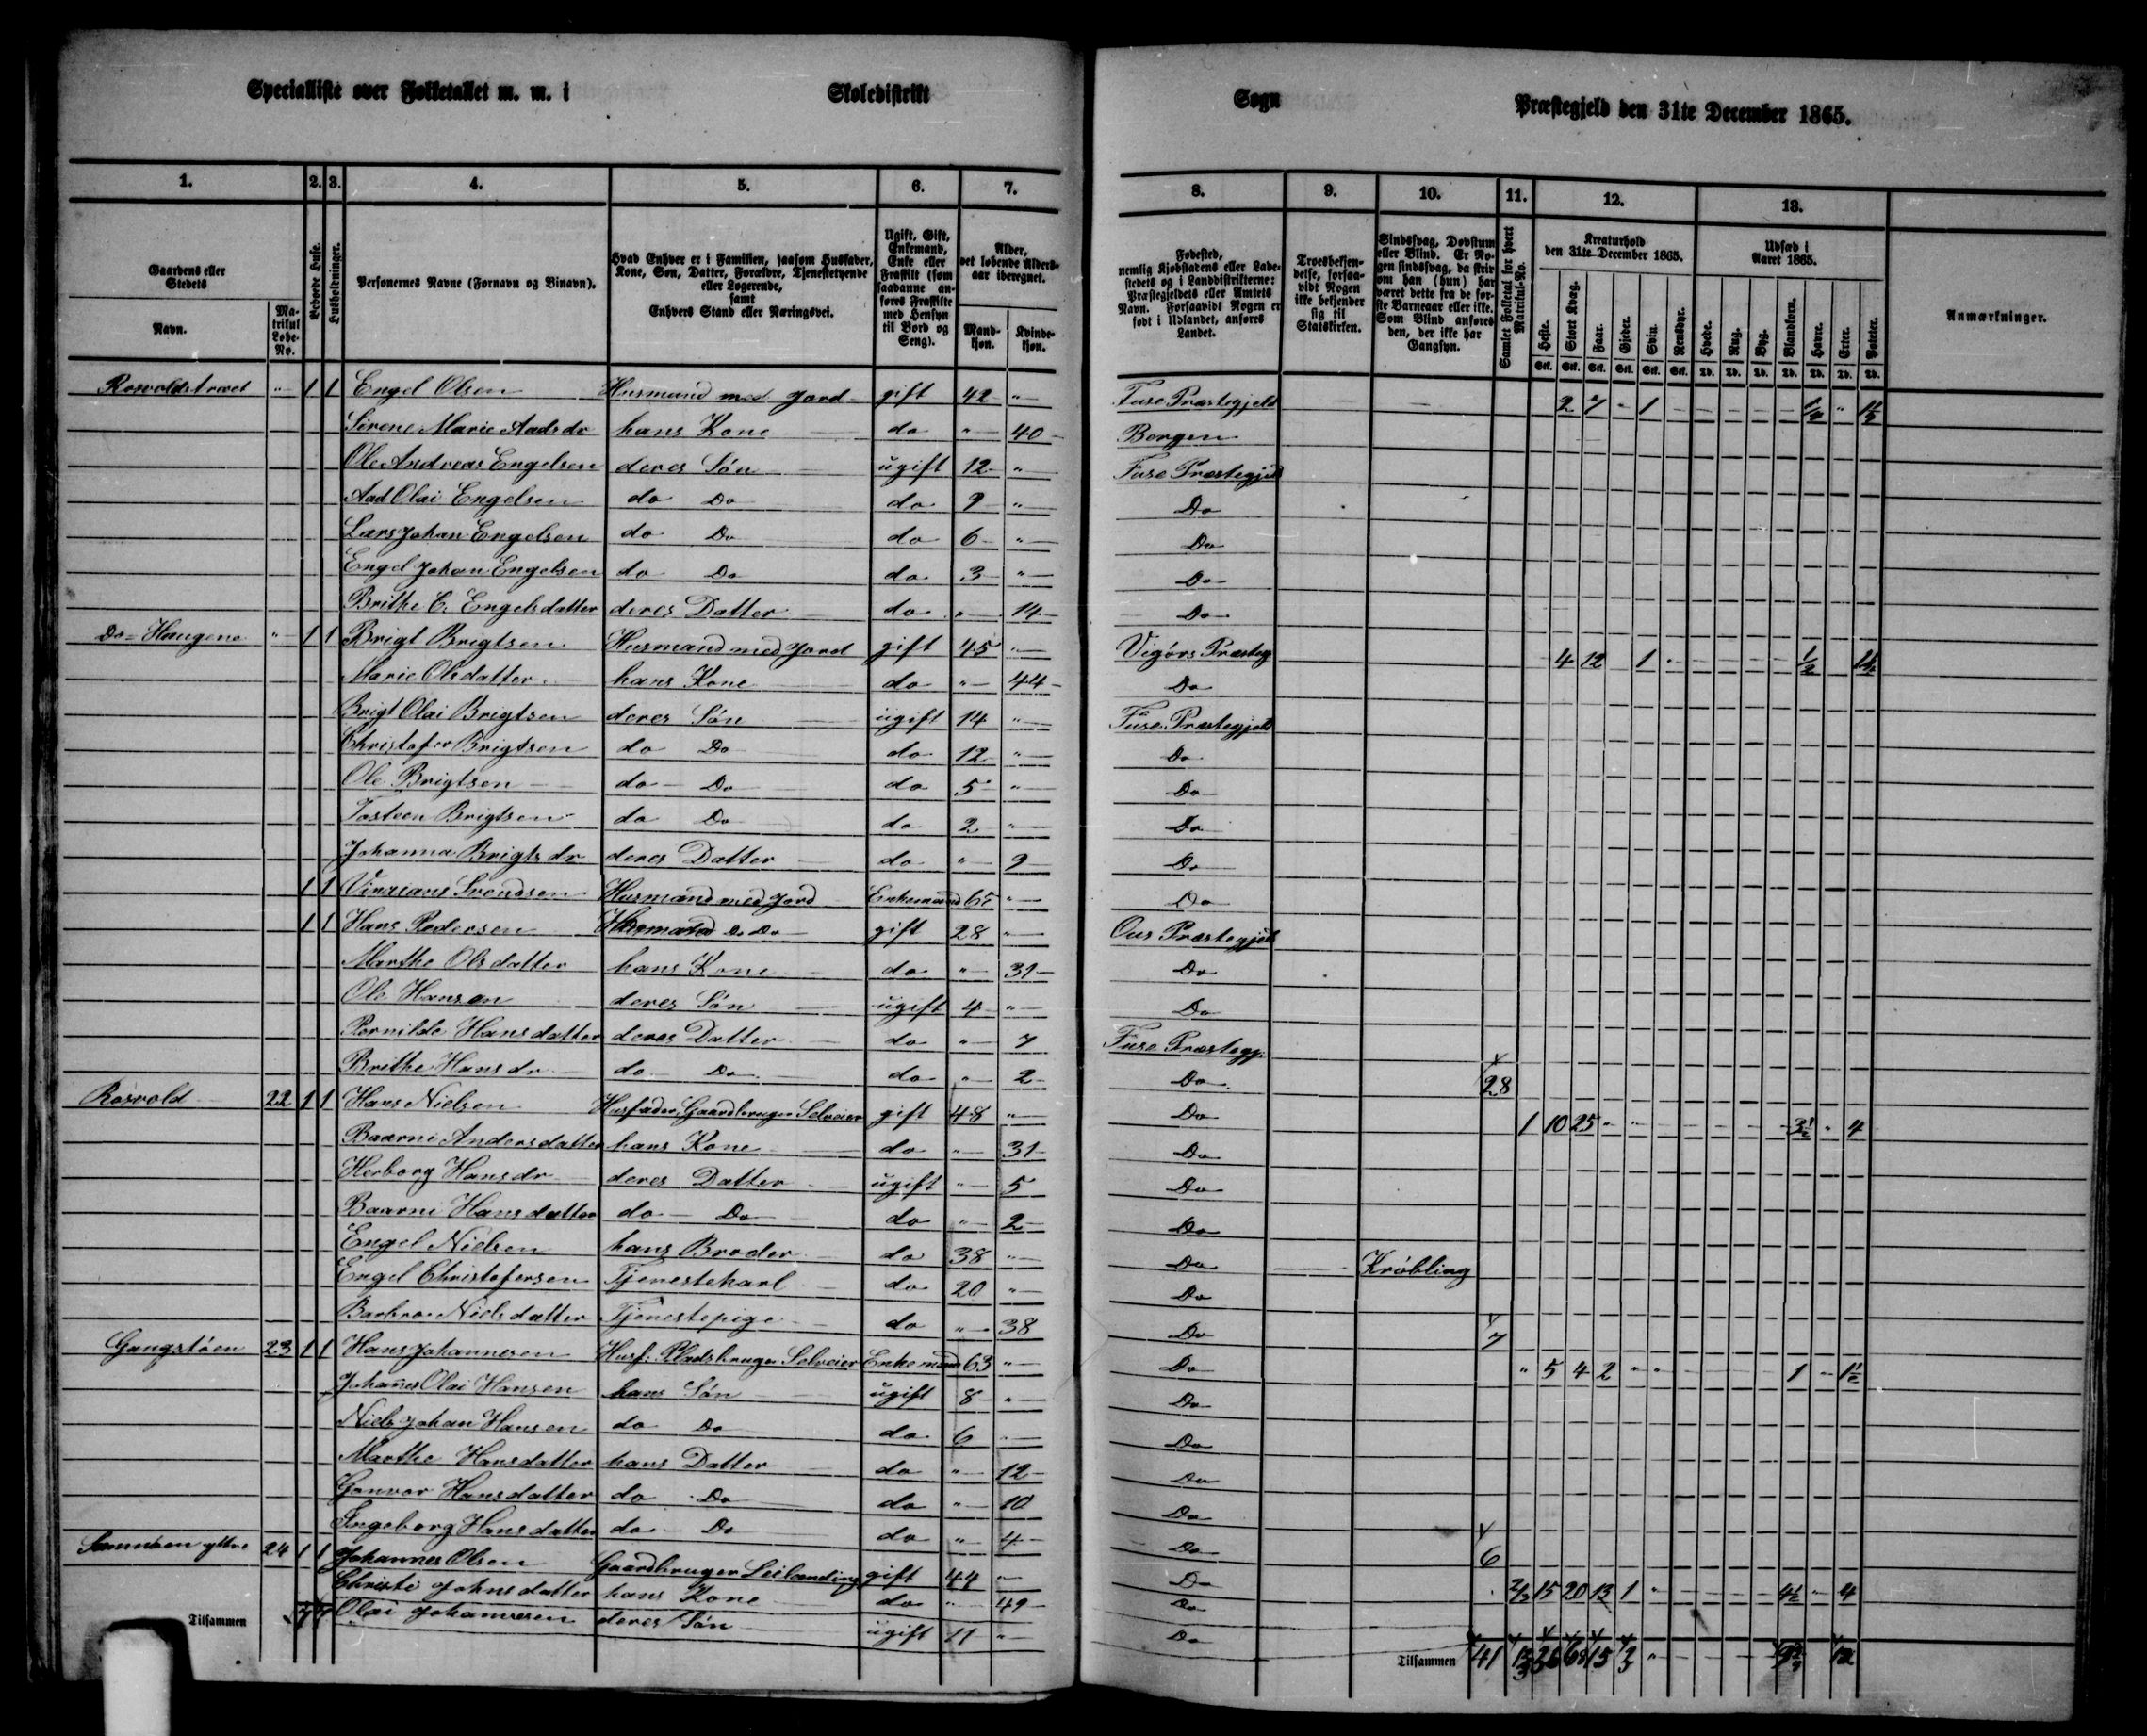 Specialliste over Folketallet m. m. i Skoledistrikt Sogn Præstegjeld den 31te December 1865.
1. 2. 3. 4. 5. 6. 7. 8. 9. 10. 11. 12. 13.
Gaardens eller Stedets
Navn.
Matrikul Løbe-No.
Beboede Huse.
Husholdninger.
Personernes Navne (Fornavn og Binavn).
Hvad Enhver er i Familien, saasom Husfader, Kone, Søn, Datter, Forældre, Tjenestetyende eller Logerende, samt Enhvers Stand eller Næringsvei.
Ugift, Gift, Enkemand, Enke eller Fraskilt (som saadanne anføres Fraskilte med Hensyn til Bord og Seng).
Alder, det løbende Alders-aar iberegnet.
Mandkjøn. Kvindekjøn.
Fødested, nemlig Kjøbstadens eller Ladestedets og i Landdistrikterne: Præstegjeldets eller Amtets Navn. Forsaavidt Nogen er født i Udlandet, anføres Landet.
Troesbekjendelse, forsaavidt Nogen ikke bekjender sig til Statskirken.
Sindssvag, Døvstum eller Blind. Er Nogen sindssvag, da skriv om han (hun) har været dette fra de første Barneaar eller ikke. Som Blind anføres den, der ikke har Gangsyn.
Samlet Folketal for hvert Matrikul-No.
Kreaturhold den 31te December 1865.
Heste. Stort Kvæg. Faar. Gjeder. Sviin. Rensdyr.
Udsæd i Aaret 1865.
Hvede. Rug. Byg. Blandkorn. Havre. Erter. Poteter.
Anmærkninger.
Stk. Stk. Stk. Stk. Stk. Stk. Td. Td. Td. Td. Td. Td. Td.
Rosvoldstræet " 1 1 Engel Olsen Husmand med Jord gift 42 " Fuse Præstegjeld 2 7 - 1 1/2 " 1 1/2
Sirene Marie Aadsdr hans Kone do " 40 Bergen
Ole Andreas Engelsen deres Søn ugift 12 " Fuse Præstegjeld
Aad Olai Engelsen do Do do 9 " Do
Lars Johan Engelsen do Do do 6 " Do
Engel Johan Engelsen do Do do 3 " Do
Brithe C. Engelsdatter deres Datter do " 14 Do
Do = Haugene " 1 1 Brigt Brigtsen Husmand med Jord gift 45 " Vigørs Præsteg 4 12 1 1/2
Marie Olsdatter hans Kone do " 44 Do
Brigt Olai Brigtsen deres Søn ugift 14 " Fuse Præstegjeld
Christofer Brigtsen do Do do 12 " Do
Ole Brigtsen do Do do 5 " Do
Tosteen Brigtsen do Do do 2 " Do
Johanna Brigtsdr deres Datter do " 9 Do
1 1 Svendsen Husmand med Jord Enkemand 65 " Do
1 1 Hans Pedersen Husmand Do Do gift 28 " Ous Præstegjeld
Marthe Olsdatter hans Kone do " 31 Do
Ole Hansen deres Søn ugift 4 " Do
Pernilde Hansdatter deres Datter do " 7 Fuse Præstegj.
Brithe Hansdr do Do do " 2 Do 28
Rosvold 22 1 1 Hans Nielsen Husfader, Gaardbruger Selveier gift 48 " Do 1 10 25 " " 3 1/2 " 4
Baarni Andersdatter hans Kone do " 31 Do
Herborg Hansdr deres Datter ugift " 5 Do
Baarni Hansdatter do Do do " 2 Do
Engel Nielsen hans Broder do 38 " Do Krøbling
Engel Christofersen Tjenestekarl do 20 " Do
Barbroe Nielsdatter Tjenestepige do " 38 Do 7
Gangstøen 23 1 1 Hans Johannesen Husf: Pladsbruger Selveier Enkemand 63 " Do " 5 4 2 " " 1 " 1 1/2
Johañes Olai Hansen hans Søn ugift 8 " Do
Niels Johan Hansen do Do do 6 " Do
Marthe Hansdatter hans Datter do " 12 Do
Gonvor Hansdatter do Do do " 10 Do
Ingeborg Hansdatter do Do do " 4 Do 6
ytre 24 1 1 Johannes Olsen Gaardbruger Leilænding gift 44 " Do 2/3 15 20 13 1 " 4 1/2 " 4
Christi Johnsdatter hans Kone do " 49 Do
Olai Johannesen deres Søn ugift 11 " Do
Tilsammen 7 7 Tilsammen 41 36 68 15 3 12